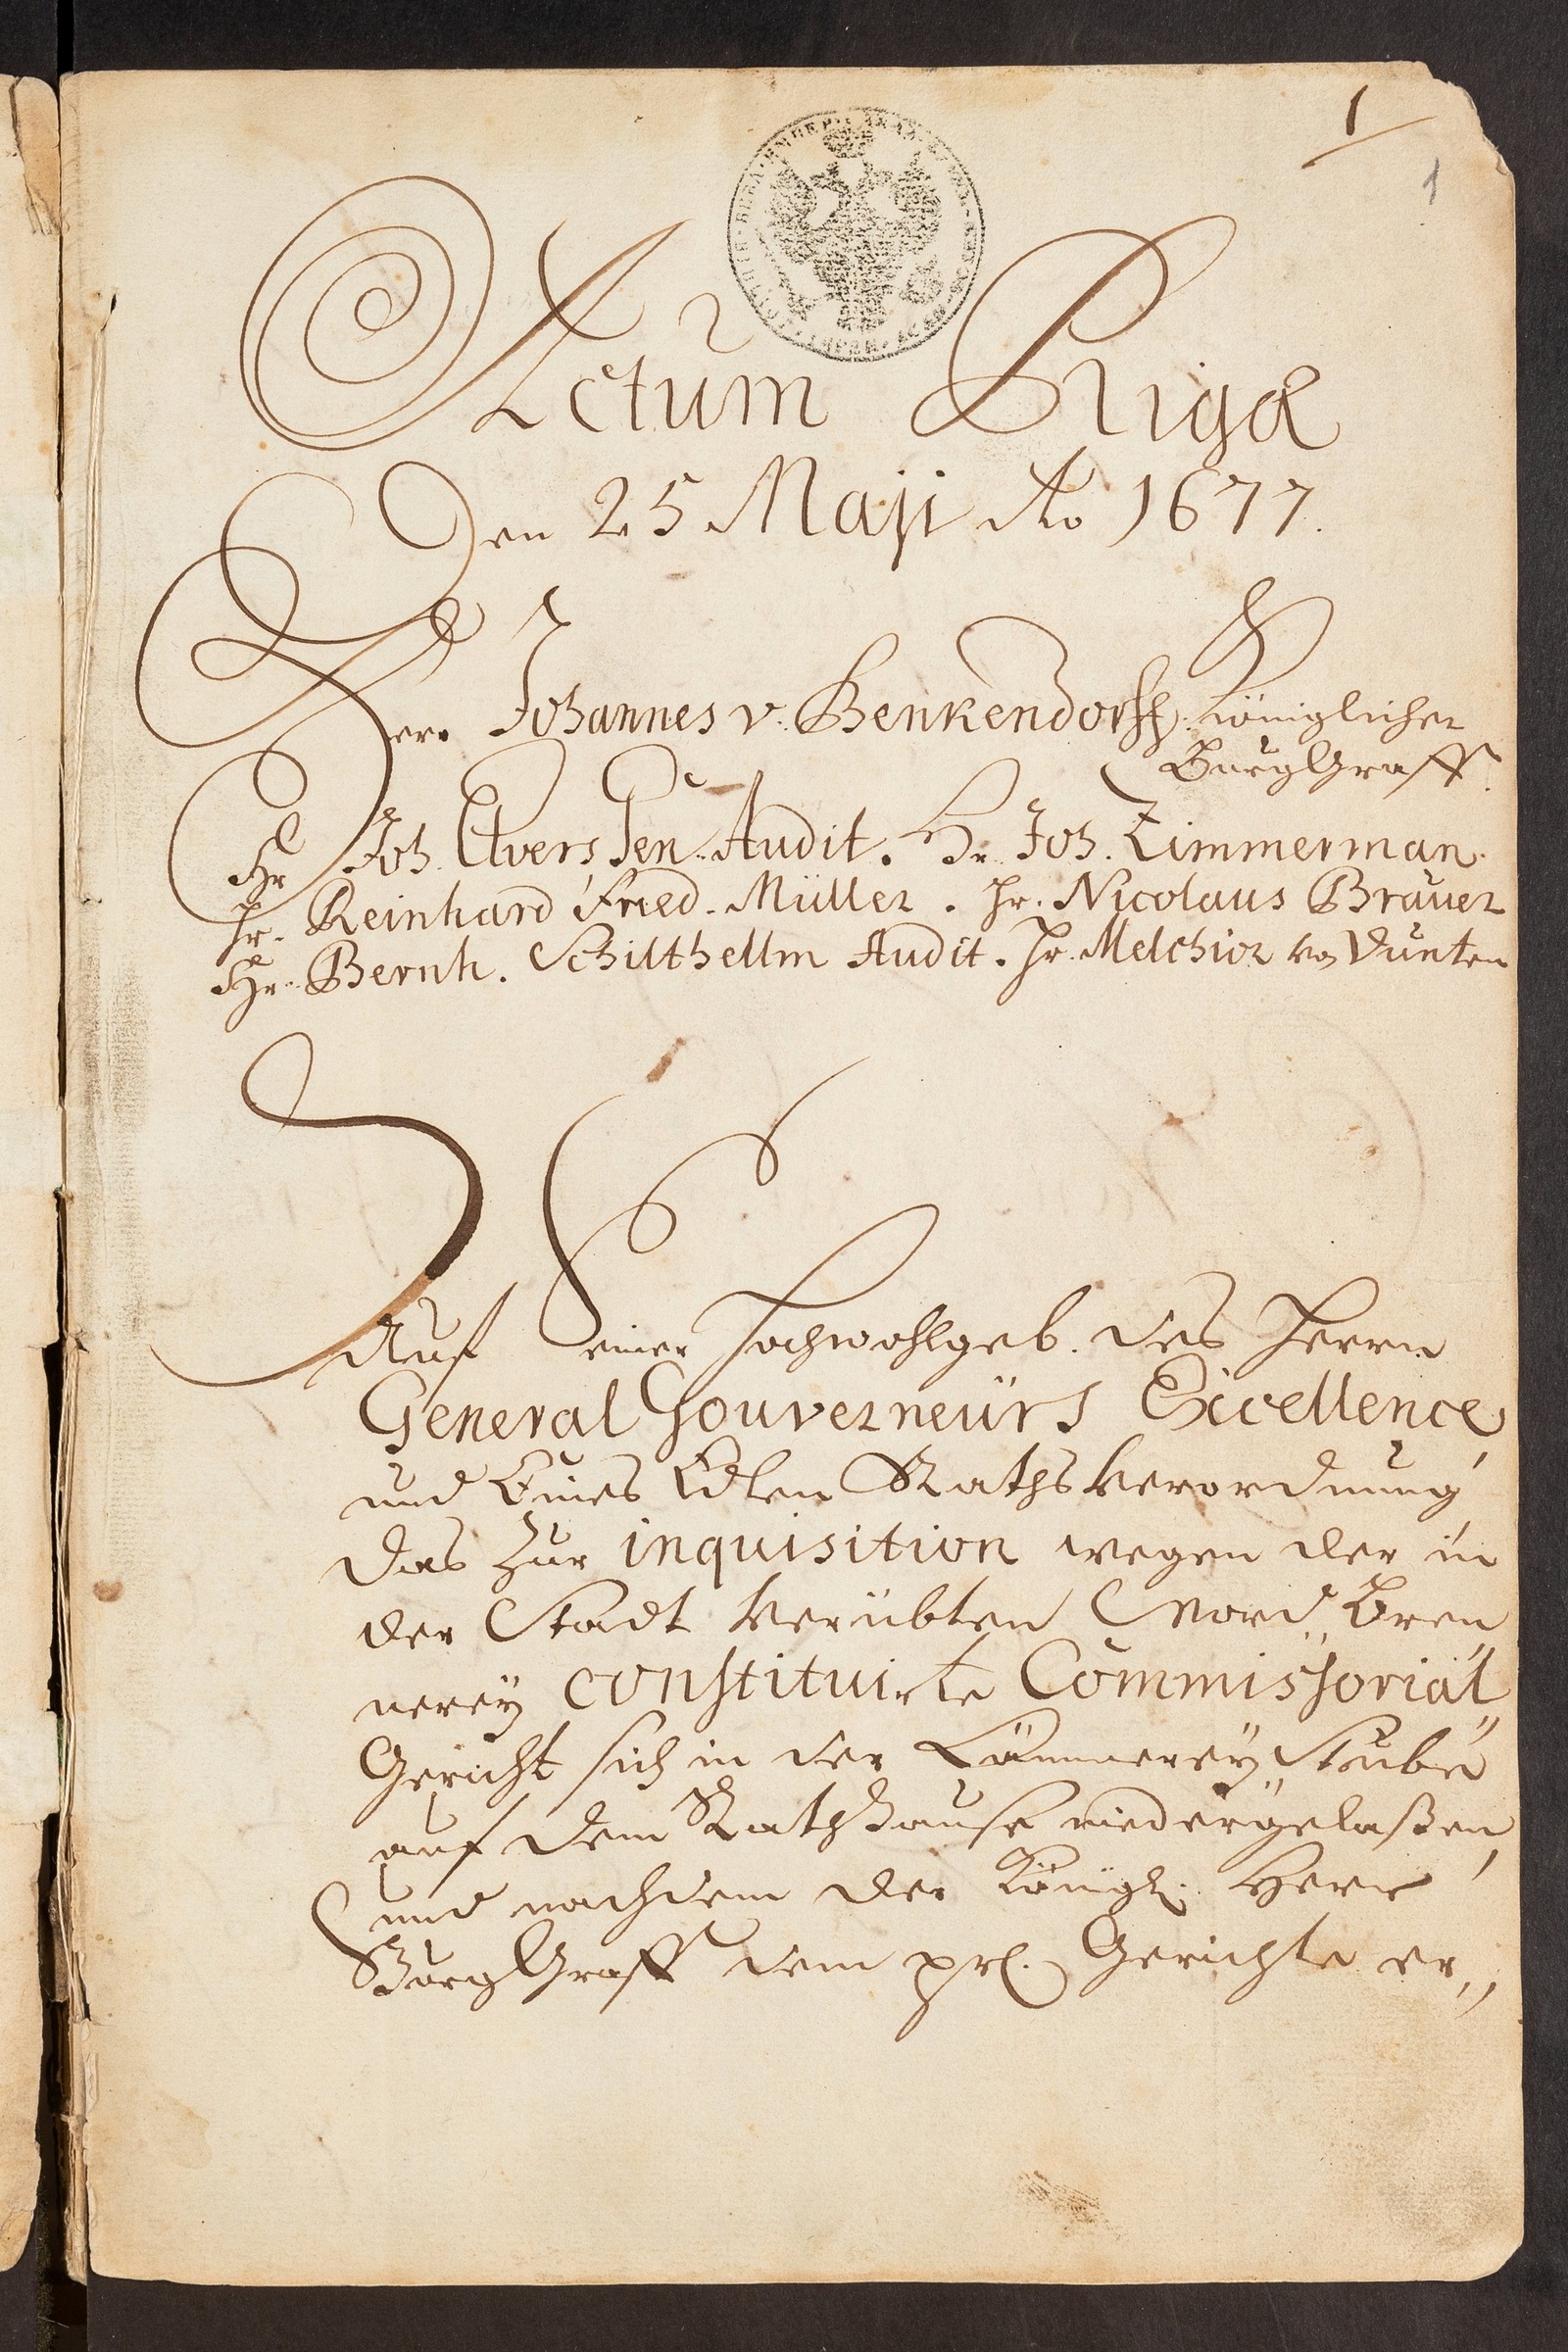 1
1
Actum Rigæ
Den 25 Maji Ao 1677.
Herr Johannes v. Benkendorff. Königlicher
BurgGraff.
Hr Joh. Evers Sen. Audit. Hr. Joh. Zimmerman.
Hr. Reinhard Fried. Müller. Hr. Nicolaus Bräuer
Hr. Bernh. Schilthellm Audit. Hr. Melchior von Dunten
Auf Seiner Hochwohlgeb. des Herrn
General Gouverneurs Excellence
und Eines Edlen Raths Verordnung
das zur inquisition wegen der in
der Stadt verübten Mord„Bren
nerey constituirte Commissorial„
Gericht sich in der Kämmerey„Stube
auf dem Rathhause niedergelaßen,
und nachdem der Königl. Herr
BurgGraff dem Gerichte er„